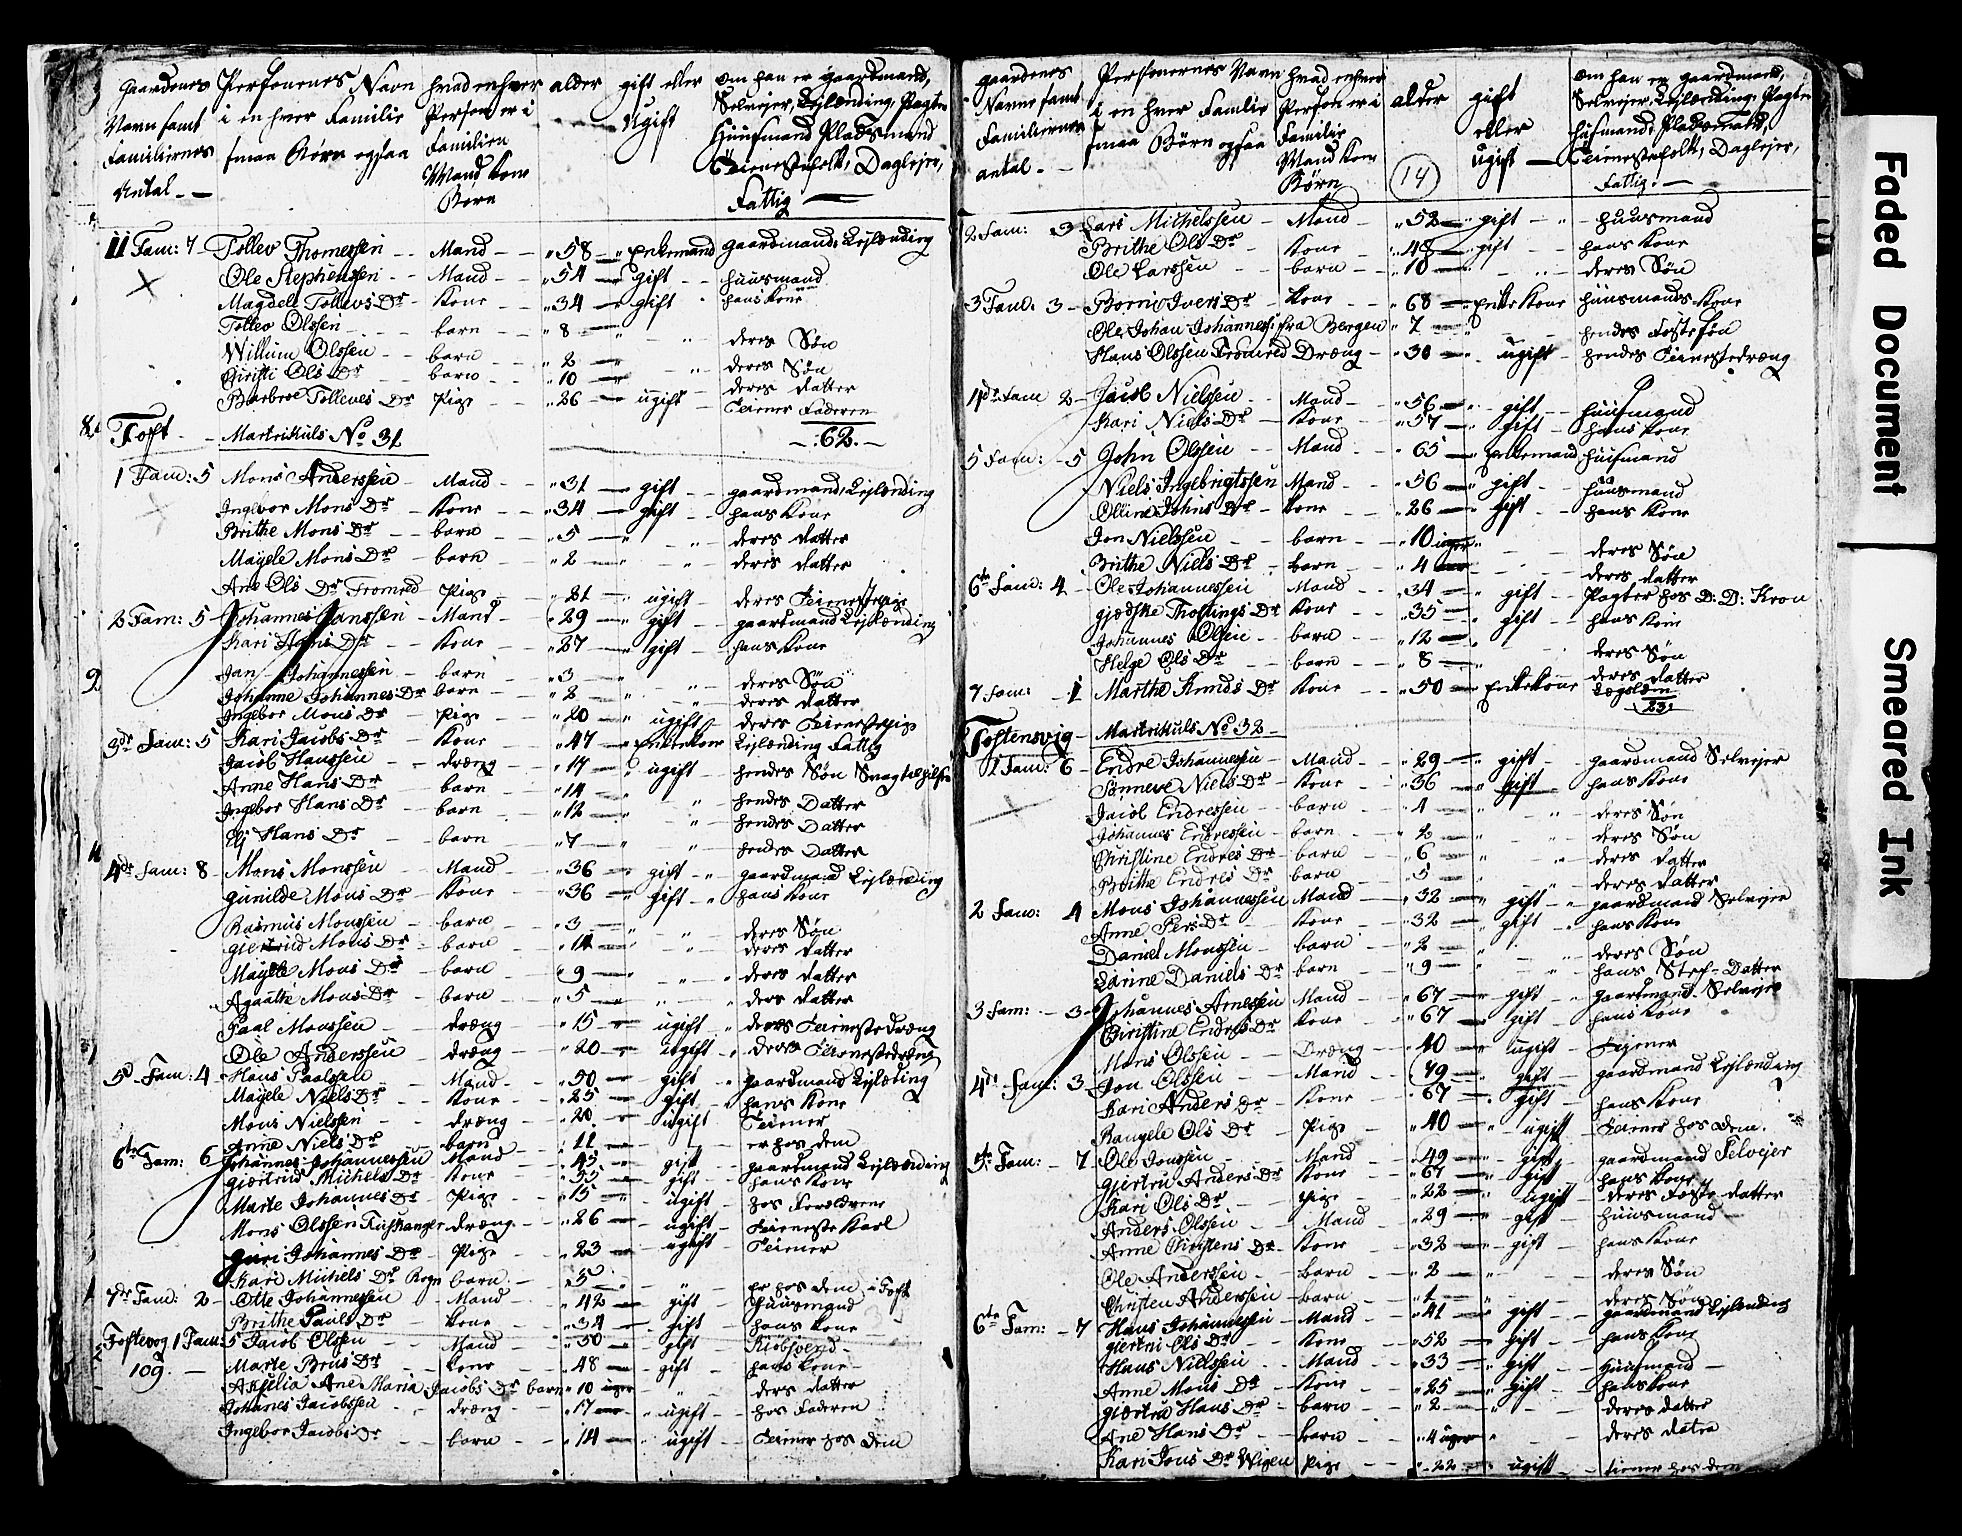 Gaardenes Navn samt Familiernes Antal. Personernes Navn i en hver Familie smaa Børn ogsaa hvad enhver Person er i Familien Mand Kone Børn alder gift eller Ugift om han er Gaardmand, Selvejer, Lejlænding, Pagter Huusmand Pladsmand Tienestefolk, Daglejer, Fattig
11 Fam: 7 Tollev Thomessen Mand 58 Enkemand Gaardmand Lejlænding
Ole Stephenssen Mand 54 gift huusmand
Magdeli Tollevs Dr Kone 34 gift hans Kone
Tollev Olssen barn 8 deres Søn
Willum Olssen barn 2 deres Søn
Christi Ols Dr barn 10 deres datter
Barbroe Tolleves Dr Pige 26 ugift Tiener Faderen
62.
Toft Martrikuls No 31
1 Fam: 5 Mons Anderssen Mand 31 gift gaardmand, Lejlænding
Ingebor Mons Dr Kone 34 gift hans Kone
Brithe Mons Dr barn 5 deres datter
Mayele Mons Dr barn 2 deres datter
Ane Ols Dr Fromred Pige 21 ugift deres Tienestepige
2 Fam: 5 Johannes Janssen Mand 29 gift gaardmand Lejlænding
Kari Hans Dr Kone 27 gift hans Kone
Jan Johannessen barn 3 deres Søn
Johanne Johannes Dr barn 2 deres datter
Ingebor Mons Dr Pige 20 ugift deres Tienestepige
3de Fam: 5 Kari Jacobs Dr Kone 47 Enkekone Lejlænding Fattig
Jacob Hanssen dræng 17 ugift hendes Søn
Anne Hans Dr barn 14 hendes Datter
Ingebor Hans Dr barn 12 hendes Datter
Elj Hans Dr barn 7 hendes Datter
4de Fam: 8 Mons Monssen Mand 36 gift gaardmand Lejlænding
Gunilde Mons Dr Kone 36 gift hans Kone
Rasmus Monssen barn 3 deres Søn
Giertrud Mons Dr barn 14 deres datter
Mayele Mons Dr barn 9 deres datter
Agaathe Mons Dr barn 5 deres datter
Paal Monssen dræng 15 ugift deres Tienestedræng
Ole Anderssen dræng 20 ugift deres Tienestedræng
5te Fam: 4 Hans Paalssen Mand 50 gift gaardmand Lejlænding
Mayele Niels Dr Kone 25 gift hans Kone
Mons Nielssen dræng 20 ugift Tiener
Anne Niels Dr barn 11 er hos dem
6te Fam: 6 Johannes Johannessen Mand gift gaardmand Lejlænding
Giertrud Michels Dr Kone 55 gift hans Kone
Marte Johannes Dr Pige 15 ugift hos Forældrene
Mons Olssen dræng 26 ugift Tieneste Karl
Guri Johannes Dr Pige 23 ugift Tiener
Kari Michels Dr barn 5 er hos dem i Toft
7de Fam: 2 Otte Johannessen Mand 42 gift Huusmand
Brithe Pauls Dr Kone 34 gift hans Kone
Toftevog 1 Fam: 5 Jacob Olssen Mand 50 gift
109. Marte Brus Dr Kone 48 gift hans Kone
Ane Maria Jacobs Dr barn 10 uger deres datter
Johanes Jacobssen dræng 17 ugift hos Faderen
Ingebor Jacobs Dr barn 14 ugift Tiener hos dem
gaardenes Navne samt Familiernes antal. Personernes Navn i en hver Familie smaa Børn ogsaa hvad enhver Person er i Familie Mand Kone Børn alder (14) gift eller ugift om han er gaardmand, Selvejer, Lejlænding, Pagter huusmand, Pladsmand, Tienestefolk, Daglejer, Fattig.
2 Fam: 3 Lars Michelssen Mand 52 gift huusmand
Brithe Ols Dr Kone 48 gift hans Kone
Ole Larssen barn 10 deres Søn
3 Fam: 3 Borni Ivers Dr Kone 68 Enke Kone huusmands Kone
Ole Johan Johannes: fra Bergen 7 hendes Fostersøn
Hans Olssen Fromred Dræng 30 ugift hendes Tienestedræng
4de Fam 2 Jacob Nielssen Mand 56 gift huusmand
Kari Niels Dr Kone 57 gift hans Kone
5 Fam: 5 John Olssen Mand 65 Enkemand huusmand
Niels Ingebrigtssen Mand 56 gift huusmand
Olline Johns Dr Kone 26 gift hans Kone
Jon Nielssen barn 10 uger deres Søn
Brithe Niels Dr barn 4 deres datter
6te Fam: 4 Ole Johannessen Mand 34 gift Pagter hos D: D: Kron
Giedske Thostings Dr Kone 35 gift hans Kone
Johannes Olssen barn 12 deres Søn
Helge Ols Dr barn 8 deres datter
7 Fam: 1 Marthe Knuds Dr Kone 50 Enkekone Lægslem
23.
Toftensvig Martrikuls No 32
1 Fam: 6 Endre Johannessen Mand 29 gift gaardmand Selvejer
Sønneve Niels Dr Kone 36 gift hans Kone
Jacob Endressen barn 4 deres Søn
Johannes Endressen barn 2 deres Søn
Christine Endres Dr barn 6 deres datter
Brithe Endres Dr barn 5 deres datter
2 Fam: 4 Mons Johannessen Mand 32 gift gaardmand Selvejer
Anne Pers Dr Kone 32 gift hans Kone
Daniel Monssen barn 2 deres Søn
Larine Daniels Dr barn 9 hans Stef-Datter
3 Fam: 3 Johannes Arnessen Mand 67 gift gaardmand Selvejer
Christine Endres Dr Kone 67 gift hans Kone
Mons Olssen Dræng 40 ugift Tjener
4de Fam: 3 Jon Olssen Mand 79 gift gaardmand Lejlænding
Kari Anders Dr Kone 67 gift hans Kone
Rangele Ols Dr Pige 40 ugift Tiener hos dem.
5te Fam: 7 Ole Jonssen Mand 49 gift gaardmand Selvejer
Giertru Anders Dr Kone 67 gift hans Kone
Kari Ols Dr Pige 22 ugift deres Foste datter
Anders Olssen Mand 29 gift huusmand
Anne Christens Dr Kone 32 gift hans Kone
Ole Anderssen barn 2 deres Søn
Christen Anderssen barn 1 deres Søn
6te Fam: 7 Hans Johannessen Mand 41 gift gaardmand Lejlænding
Giertru Ols Dr Kone 52 gift hans Kone
Hans Nielssen Mand 33 gift Huusmand
Anne Mons Dr Kone 25 gift hans Kone
Giertru Hans Dr barn 2 deres datter
Ane Hans Dr barn 4 uger deres datter
Kari Jons Dr Wigen Pige 22 ugift tiener hos dem
Faded Document
Smeared Ink